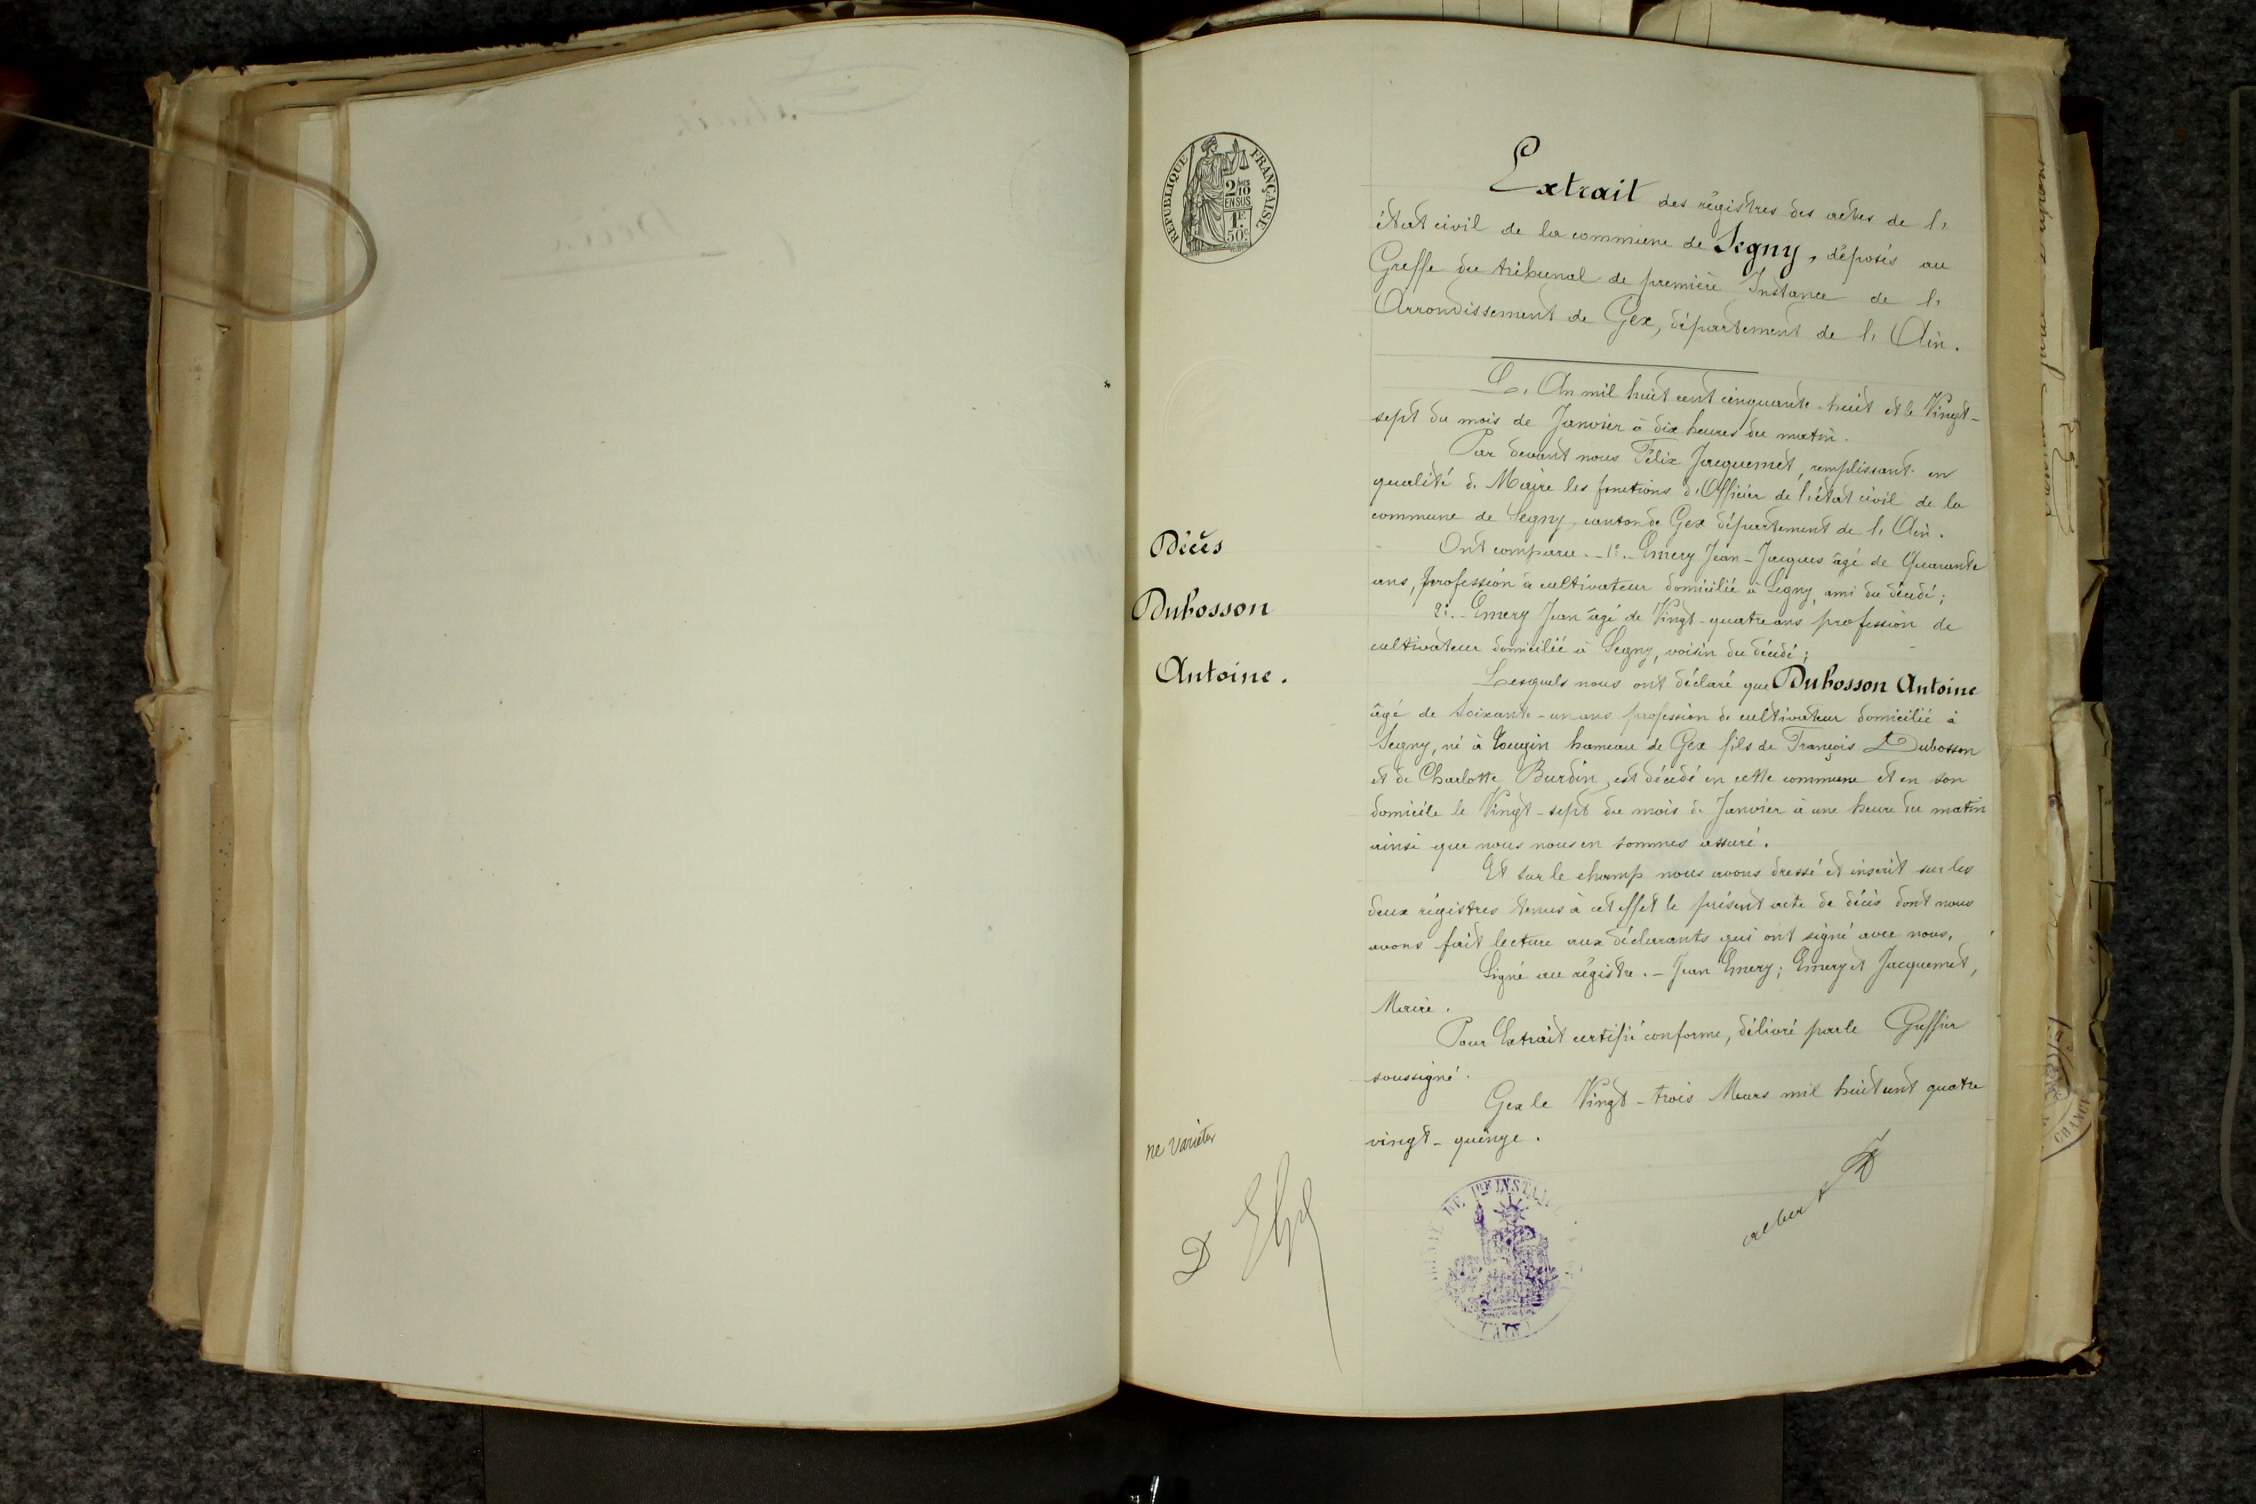 RÉPUBLIQUE FRANÇAISE
2/10 EN SUS
1F 50c
Extrait des régistres des actes de l'
état civil de la commune de Segny, déposés au
Greffe du tribunal de première Instance de l'
Arrondissement de Gex, département de l'Ain.
L'An mil huit cent cinquante-huit et le Vingt-
sept du mois de Janvier à dix heures du matin.
Par devant nous Félix Jacquemet, remplissant en
qualité de Maire les fonctions d'Officier de l'état civil de la
commune de Segny, canton de Gex département de l'Ain.
Ont comparu. - 1º. - Emery Jean-Jacques âgé de Quarante
ans, profession de cultivateur domicilié à Segny, ami du décédé;
2º. - Emery Jean âgé de Vingt-quatre ans profession de
cultivateur domicilié à Segny, voisin du décédé;
Décès
Dubosson
Antoine.
Lesquels nous ont déclaré que Dubosson Antoine
âgé de Soixante-un ans profession de cultivateur domicilié à
Segny, né à Tougin hameau de Gex fils de François Dubosson
et de Charlotte Burdin, est décédé en cette commune et en son
domicile le Vingt-sept du mois de Janvier à une heure du matin
ainsi que nous nous en sommes assuré.
Et sur le champ nous avons dressé et inscrit sur les
deux régistres tenus à cet effet le présent acte de décès dont nous
avons fait lecture aux déclarants qui ont signé avec nous.
Signé au régistre. - Jean Emery; Emery et Jacquemet,
Maire.
Pour Extrait certifié conforme, délivré par le Greffier
soussigné.
Gex le Vingt-trois Mars mil huit cent quatre
vingt-quinze.
ne varietur
DE 1RE INSTA
(AIN)